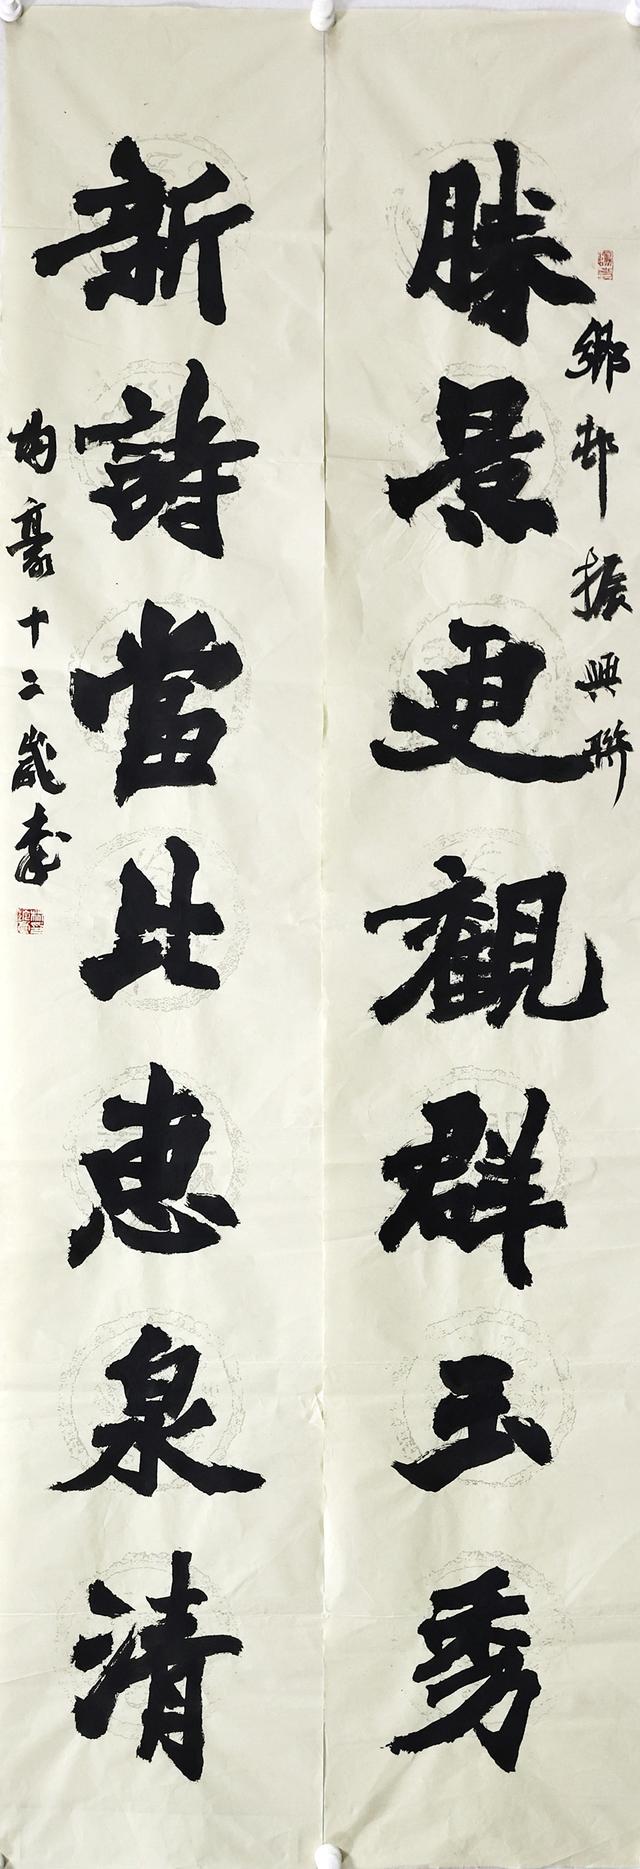 勝景更觀群玉秀
鄉邨振興聯
新詩當比惠泉清
十二歲書